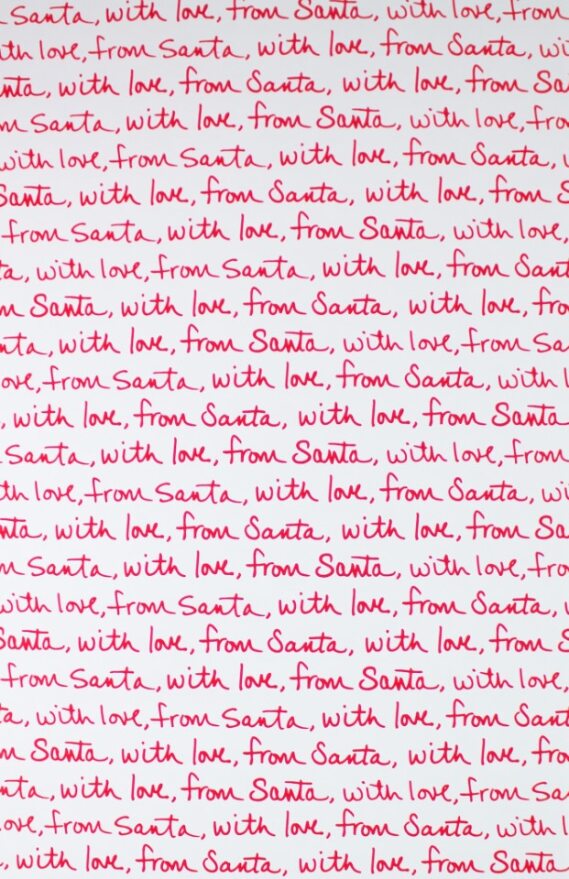 Santa, with love, from Santa, with love, from
with love, from Santa, with love, from Santa,
with love, from Santa, with love, from
Santa, with love, from Santa, with love,
with love, from Santa, with love, from Santa,
Santa, with love, from Santa, with love, from
from Santa, with love, from Santa, with love,
with love, from Santa, with love, from
Santa, with love, from Santa, with love,
with love, from Santa, with love, from
from Santa, with love, from Santa, with
, with love, from Santa, with love, from Santa
Santa, with love, from Santa, with love, from
love, from Santa, with love, from Santa,
with love, from Santa, with love, from
Santa, with love, from Santa, with love,
with love, from Santa, with love, from Santa,
Santa, with love, from Santa, with love, from
from Santa, with love, from Santa, with love,
with love, from Santa, with love, from
Santa, with love, from Santa, with love,
with love, from Santa, with love, from
from Santa, with love, from Santa, with
, with love, from Santa, with love, from Santa